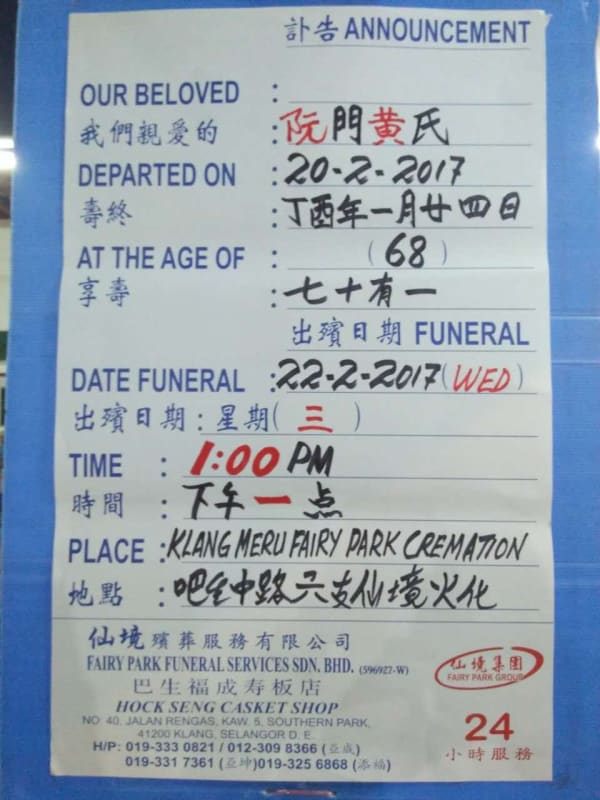 訃告 ANNOUNCEMENT
OUR BELOVED :
我們親愛的 : 阮門黄氏
DEPARTED ON : 20-2-2017
壽終 : 丁酉年一月廿四日
AT THE AGE OF : (68)
享壽 : 七十有一
出殯日期 FUNERAL
DATE FUNERAL : 22-2-2017 (WED)
出殯日期 : 星期( 三 )
TIME : 1:00 PM
時間 : 下午一点
PLACE : KLANG MERU FAIRY PARK CREMATION
地點 : 吧生中路六支仙境火化
仙境殯葬服務有限公司
FAIRY PARK FUNERAL SERVICES SDN. BHD. (596927-W)
巴生福成寿板店
HOCK SENG CASKET SHOP
NO. 40, JALAN RENGAS, KAW. 5, SOUTHERN PARK,
41200 KLANG, SELANGOR D. E.
H/P: 019-333 0821 / 012-309 8366 (亞成)
019-331 7361 (亞坤) 019-325 6868 (添福)
仙境集團
FAIRY PARK GROUP
24
小時服務